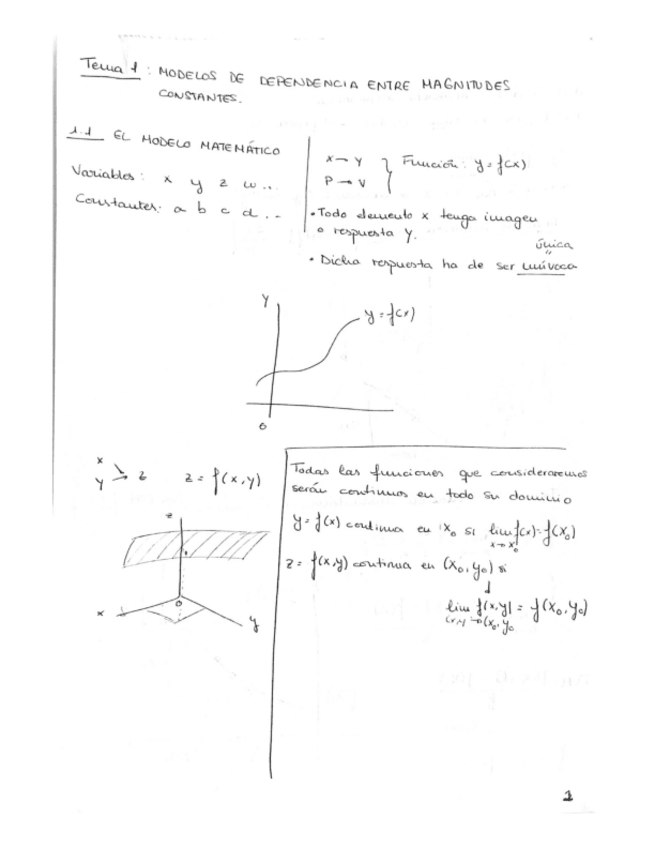 Tema 1 : MODELOS DE DEPENDENCIA ENTRE MAGNITUDES
CONSTANTES.
1.1 EL MODELO MATEMÁTICO
Variables: x y z w ...
Constantes: a b c d ...
x → y } Función: y = f(x)
P → V
• Todo elemento x tenga imagen
o respuesta y.
única
"
• Dicha respuesta ha de ser unívoca
Y
y = f(x)
0
x
y → z z = f(x,y)
z
0
x
y
Todas las funciones que consideraremos
serán continuas en todo su dominio
y = f(x) continua en x₀ si lim f(x) = f(x₀)
x→x₀
z = f(x,y) continua en (x₀,y₀) si
↓
lim f(x,y) = f(x₀,y₀)
(x,y)→(x₀,y₀
1